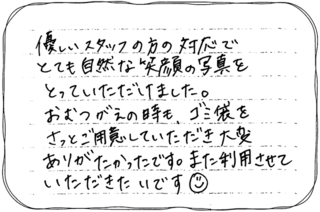 優しいスタッフの方の対応で
とても自然な笑顔の写真を
とっていただけました。
おむつがえの時も、ゴミ袋を
さっとご用意していただき大変
ありがたかったです。また利用させて
いただきたいです☺